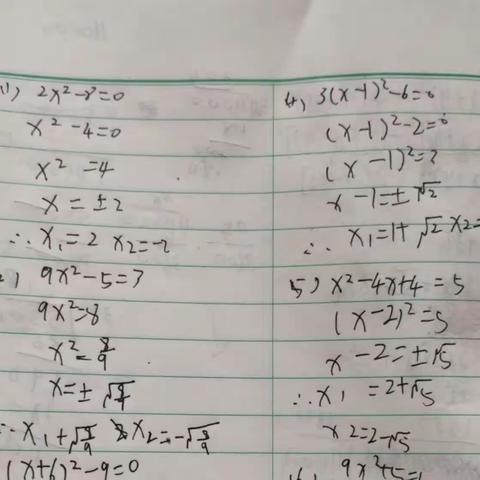 1) 2x²-8=0
x²-4=0
x²=4
x=±2
∴x₁=2 x₂=-2
2) 9x²-5=3
9x²=8
x²=8/9
x=±√(8/9)
∴x₁+√(8/9) x₂=-√(8/9)
(x+6)²-9=0
4, 3(x-1)²-6=0
(x-1)²-2=0
(x-1)²=2
x-1=±√2
∴ x₁=1+√2 x₂=
5) x²-4x+4=5
(x-2)²=5
x-2=±√5
∴x₁=2+√5
x2=2-√5
9x²+5=